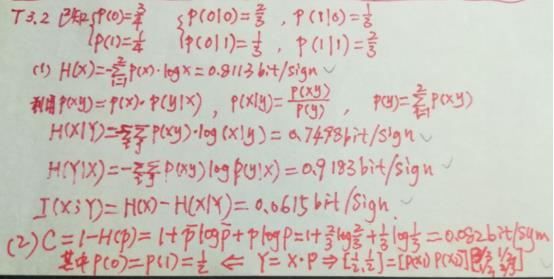 T3.2 已知 { P(0)=3/4 { P(0|0)=2/3 , P(1|0)=1/3
P(1)=1/4 P(0|1)=1/3 , P(1|1)=2/3
(1) H(X)=-∑_{i=1}^{2} P(x)·logx=0.8113bit/sign
利用P(xy)=P(x)·P(y|x) , P(x|y)=P(xy)/P(y) , P(y)=∑_{i=1}^{2}P(xy)
H(X|Y)=-∑_i∑_j P(xy)·log(x|y)=0.7498bit/sign
H(Y|X)=-∑_i∑_j P(xy)logP(y|x)=0.9183bit/sign
I(X;Y)=H(X)-H(X|Y)=0.0615bit/sign.
(2) C=1-H(p)=1+p̄logp̄+plogp=1+2/3log2/3+1/3log1/3=0.082bit/sym
其中P(0)=P(1)=1/2 ⇐ Y=X·P ⇒ [1/2,1/2]=[P(x1) P(x2)]